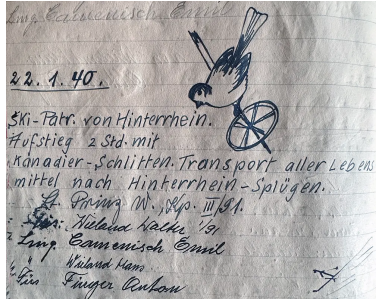 Lmg. Camenisch Emil
22.1.40.
Ski-Patr. von Hinterrhein.
Aufstieg 2 Std. mit
Kanadier-Schlitten. Transport aller Lebens
mittel nach Hinterrhein-Splügen.
Lt. Prinz W., Kp. III/91.
Füs. Wieland Walter 1/91
Lmg. Camenisch Emil
" Wieland Hans
Füs Finger Anton